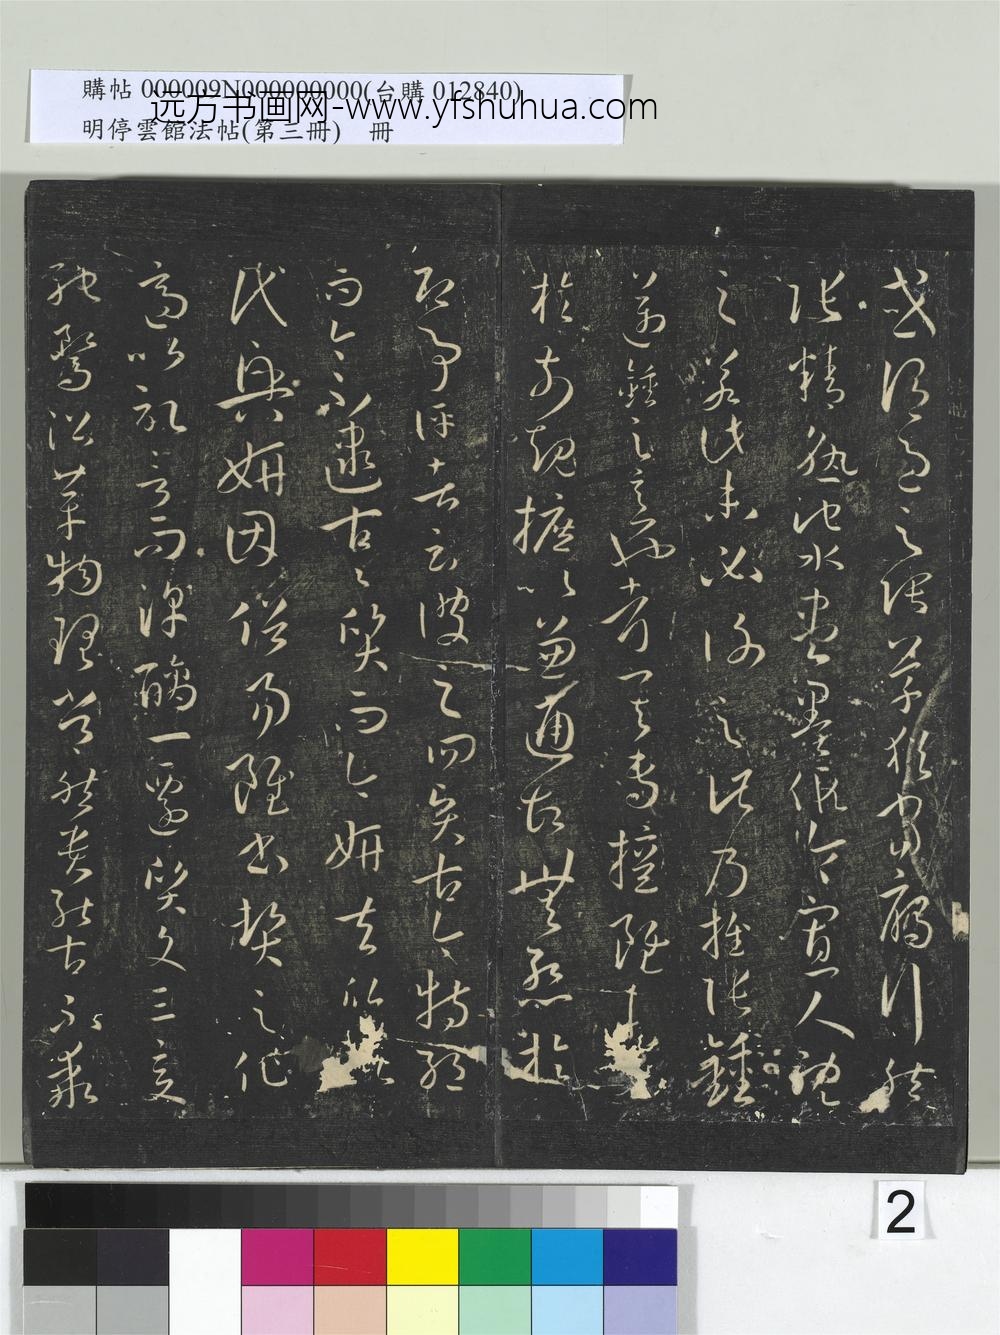 購帖 000009N000000000(台購 012840)
明停雲館法帖(第三冊) 冊
远方书画网-www.yfshuhua.com
或謂過之張草猶當鴈行然
張精熟池水盡墨假令寡人耽
之若此未必謝之此乃推張鍾
邁鍾之意也考其專擅雖未
於前規摭以兼通故無慙於
即事評者云彼之四賢古今特絕
而今不逮古〻質而今妍夫質以
代興妍因俗易雖書契之作
適以記言而淳醨一遷質文三變
馳騖沿革物理常然貴能古不乖
2